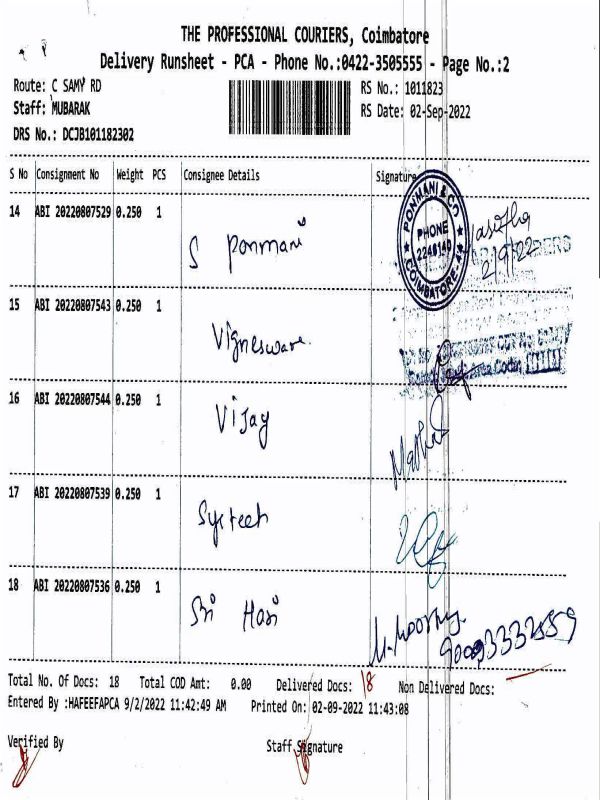 THE PROFESSIONAL COURIERS, Coimbatore
Delivery Runsheet - PCA - Phone No.:0422-3505555 - Page No.:2
Route: C SAMY RD
RS No.: 1011823
Staff: MUBARAK
RS Date: 02-Sep-2022
DRS No.: DCJB101182302
S No Consignment No Weight PCS Consignee Details Signature
PONMANI & CO
PHONE
2246140
COIMBATORE-44
14 ABI 20220807529 0.250 1
S Ponmani
2/9/22
15 ABI 20220807543 0.250 1
Vigneswara.
16 ABI 20220807544 0.250 1
Vijay
17 ABI 20220807539 0.250 1
Systech
18 ABI 20220807536 0.250 1
Sri Hari
M. Moorthy
Total No. Of Docs: 18 Total COD Amt: 0.00 Delivered Docs: 18 Non Delivered Docs:
Entered By :HAFEEFAPCA 9/2/2022 11:42:49 AM Printed On: 02-09-2022 11:43:08
Verified By Staff Signature